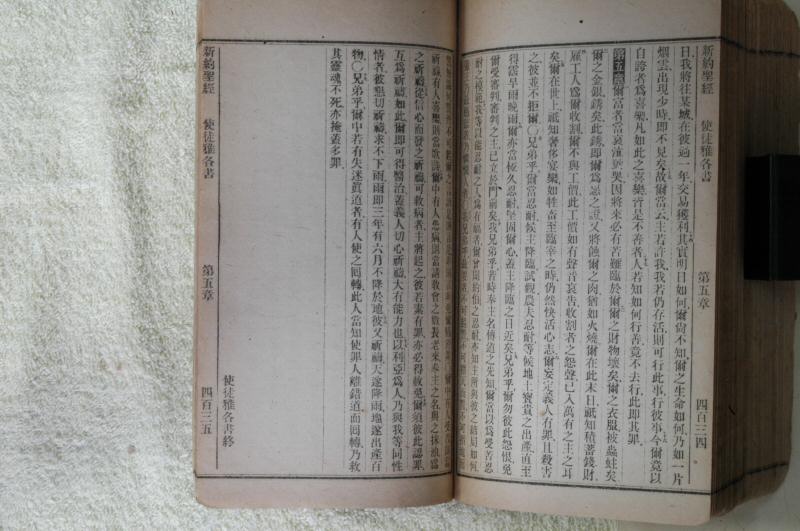 新約聖經 使徒雅各書 第五章 四百三四
日我將往某城在彼過一年交易獲利其實明日如何爾尙不知爾之生命如何乃如一片
烟雲出現少時卽不見矣故爾當云主若許我我若仍存活則可行此事行彼事今爾竟以
自誇者爲喜樂凡如此之喜樂皆是不善者人若知如何行善竟不去行此卽其罪
第五章爾富者當哀淮哭因將來必有苦難臨於爾爾之財物壞矣爾之衣服被蟲蛀矣
爾之金銀銹矣此銹卽爾爲惡之證又將蝕爾之肉猶如火燒爾在此末日祇知積蓄錢財
雇工人爲爾收割爾不與工價此工價如有聲音哀告收割者之怨聲已入萬有之主之耳
矣爾在世上祇知奢侈宴樂如牲畜至臨宰之時仍然快活心志爾妄定義人有罪且殺害
之彼並不拒爾〇兄弟乎爾當忍耐候主降臨試觀農夫忍耐等候地土寶貴之出產直至
得霑早雨晚雨爾亦當恆久忍耐堅固爾心蓋主降臨之日近矣兄弟乎爾勿彼此怨恨免
爾受審判審判之主已立於門前矣我兄弟乎昔時奉主名傳道之先知爾當以爲受苦忍
耐之模範我等以能忍耐之人爲有福者爾曾聞約伯之忍耐亦知主所與彼之結局如何
之祈禱從信心而發之祈禱可救病者主將起之彼若素有罪亦必得赦免爾須彼此認罪
互爲祈禱如此爾卽可得醫治蓋義人切心祈禱大有能力也以利亞爲人乃與我等同性
情者彼懇切祈禱求不下雨雨卽三年有六月不降於地彼又祈禱天遂降雨地遂出產百
物〇兄弟乎爾中若有失迷眞道者有人使之囘轉此人當知使罪人離錯道而囘轉乃救
其靈魂不死亦掩蓋多罪
使徒雅各書終
新約聖經 使徒雅各書 第五章 四百三五